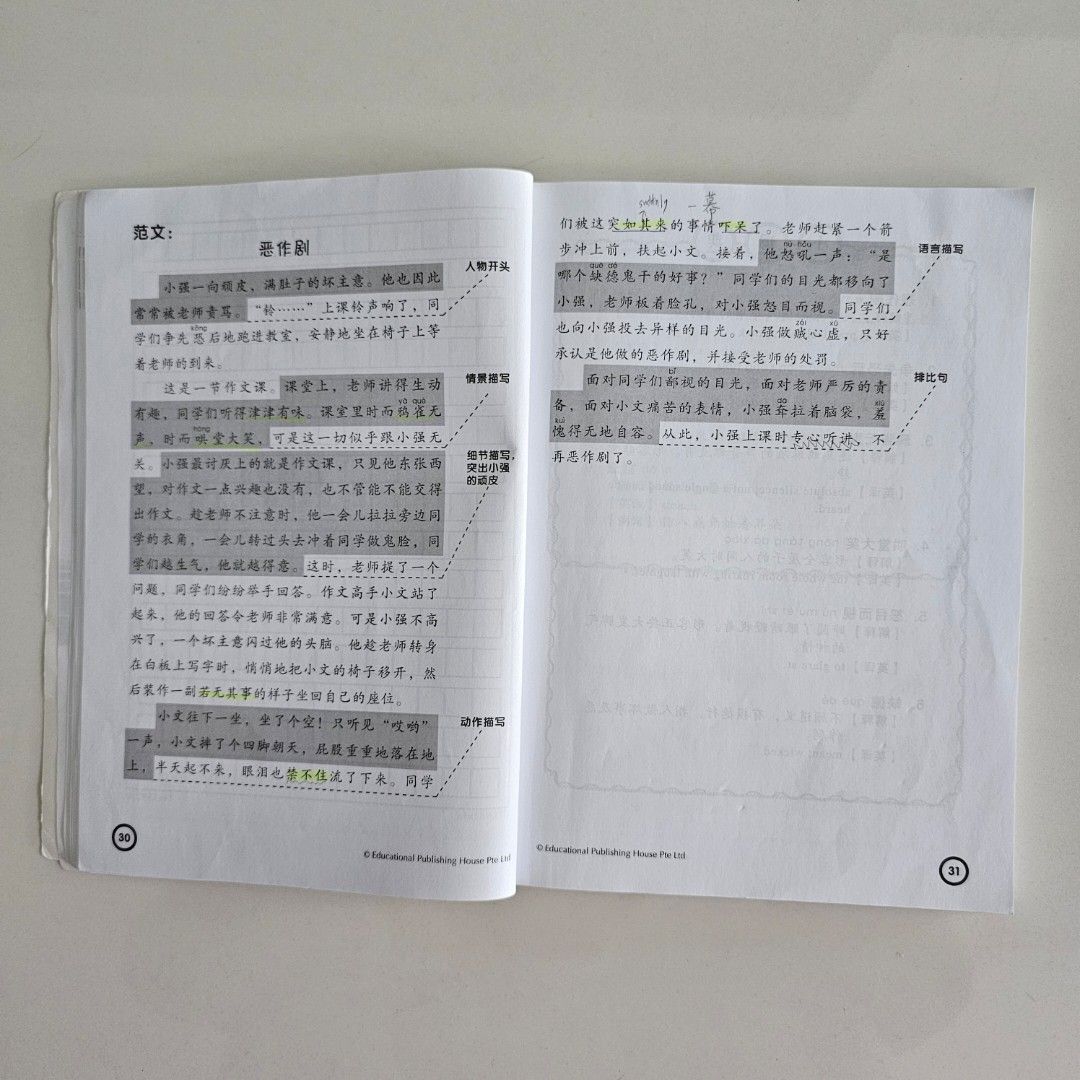 范文：
恶作剧
小强一向顽皮，满肚子的坏主意。他也因此
常常被老师责骂。“铃……”上课铃声响了，同
kǒng
学们争先恐后地跑进教室，安静地坐在椅子上等
着老师的到来。
这是一节作文课。课堂上，老师讲得生动
有趣，同学们听得津津有味。课堂里时而鸦雀无
yā què
声，时而哄堂大笑，可是这一切似乎跟小强无
hōng
关。小强最讨厌上的就是作文课，只见他东张西
望，对作文一点兴趣也没有，也不管能不能交得
出作文。趁老师不注意时，他一会儿拉拉旁边同
学的衣角，一会儿转过头去冲着同学做鬼脸，同
学们越生气，他就越得意。这时，老师提了一个
问题，同学们纷纷举手回答。作文高手小文站了
起来，他的回答令老师非常满意。可是小强不高
兴了，一个坏主意闪过他的头脑。他趁老师转身
在白板上写字时，悄悄地把小文的椅子移开，然
后装作一副若无其事的样子坐回自己的座位。
小文往下一坐，坐了个空！只听见“哎哟”
一声，小文摔了个四脚朝天，屁股重重地落在地
上，半天起不来，眼泪也禁不住流了下来。同学
人物开头
情景描写
细节描写，
突出小强
的顽皮
动作描写
30
© Educational Publishing House Pte Ltd
suddenly
一幕
们被这突如其来的事情吓呆了。老师赶紧一个箭
步冲上前，扶起小文。接着，他怒吼一声：“是
nù hǒu
哪个缺德鬼干的好事？”同学们的目光都移向了
quē dé
小强，老师板着脸孔，对小强怒目而视。同学们
也向小强投去异样的目光。小强做贼心虚，只好
zéi xū
承认是他做的恶作剧，并接受老师的处罚。
面对同学们鄙视的目光，面对老师严厉的责
bǐ
备，面对小文痛苦的表情，小强耷拉着脑袋，羞
dā xiū
愧得无地自容。从此，小强上课时专心听讲，不
kuì
再恶作剧了。
语言描写
排比句
© Educational Publishing House Pte Ltd
31